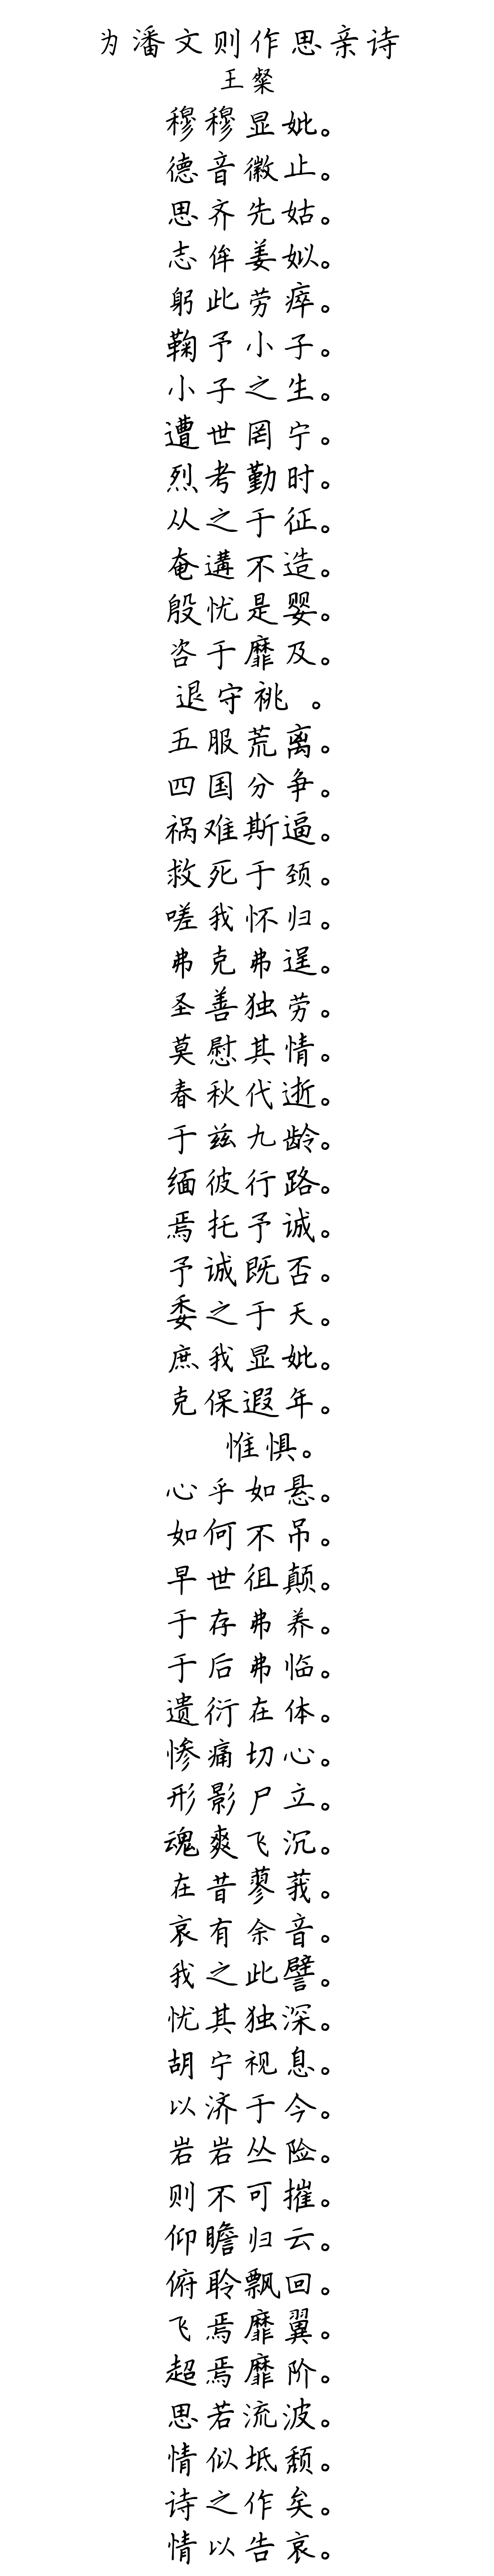 为潘文则作思亲诗
王粲
穆穆显妣。
德音徽止。
思齐先姑。
志侔姜姒。
躬此劳瘁。
鞠予小子。
小子之生。
遭世罔宁。
烈考勤时。
从之于征。
奄遘不造。
殷忧是婴。
咨于靡及。
退守祧 。
五服荒离。
四国分争。
祸难斯逼。
救死于颈。
嗟我怀归。
弗克弗逞。
圣善独劳。
莫慰其情。
春秋代逝。
于兹九龄。
缅彼行路。
焉托予诚。
予诚既否。
委之于天。
庶我显妣。
克保遐年。
惟惧。
心乎如悬。
如何不吊。
早世徂颠。
于存弗养。
于后弗临。
遗衍在体。
惨痛切心。
形影尸立。
魂爽飞沉。
在昔蓼莪。
哀有余音。
我之此譬。
忧其独深。
胡宁视息。
以济于今。
岩岩丛险。
则不可摧。
仰瞻归云。
俯聆飘回。
飞焉靡翼。
超焉靡阶。
思若流波。
情似坻颓。
诗之作矣。
情以告哀。